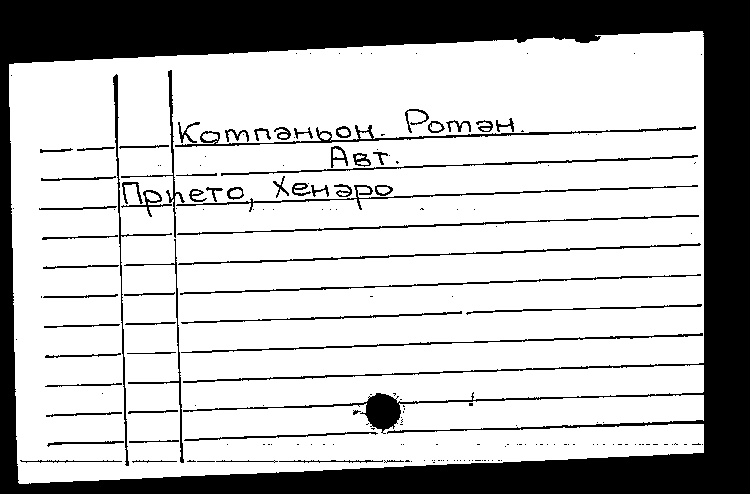 Компаньон. Роман.
Авт.
Прието, Хенаро